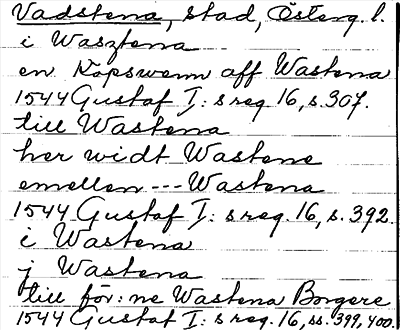 Vadstena, stad, Österg. l.
i Wasztena
en Köpswenn aff Wastena
1544 Gustaf I: s reg. 16, s. 307.
till Wastena
her widt Wastene
emellen --- Wastena
1544 Gustaf I: s reg. 16, s. 392.
i Wastena
j Wastena
till för: ne Wastena Borgere
1544 Gustaf I: s reg. 16, ss. 399, 400.